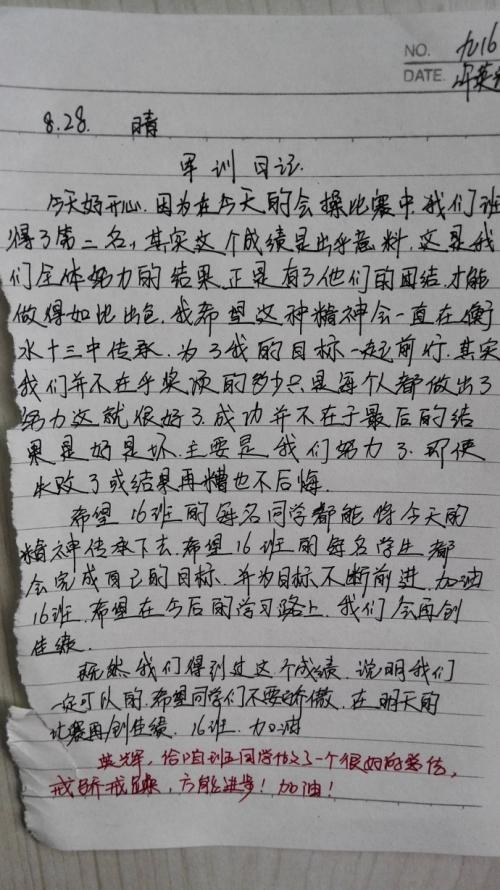 NO. 九16
DATE.
8.28. 晴
军训日记.
今天好开心.因为在今天的会操比赛中.我们班
得了第二名,其实这个成绩是出乎意料.这是我
们全体努力的结果.正是有了他们的团结.才能
做得如比出色.我希望这种精神会一直在衡
水十三中传承.为了我的目标一起前行.其实
我们并不在乎奖项的多少只是每个人都做出了
努力这就很好了.成功并不在于最后的结
果是好是坏.主要是我们努力了.即使
失败了或结果再糟也不后悔.
希望16班的每名同学都能将今天的
精神传承下去.希望16班的每名学生都
会完成自己的目标、并为目标不断前进.加油
16班.希望在今后的学习路上.我们会再创
佳绩.
既然我们得到过这个成绩.说明我们
一定可以的.希望同学们不要骄傲.在明天的
比赛再创佳绩.16班.加油
英辉,给咱班同学做了一个很好的总结,
戒骄戒躁,方能进步!加油!